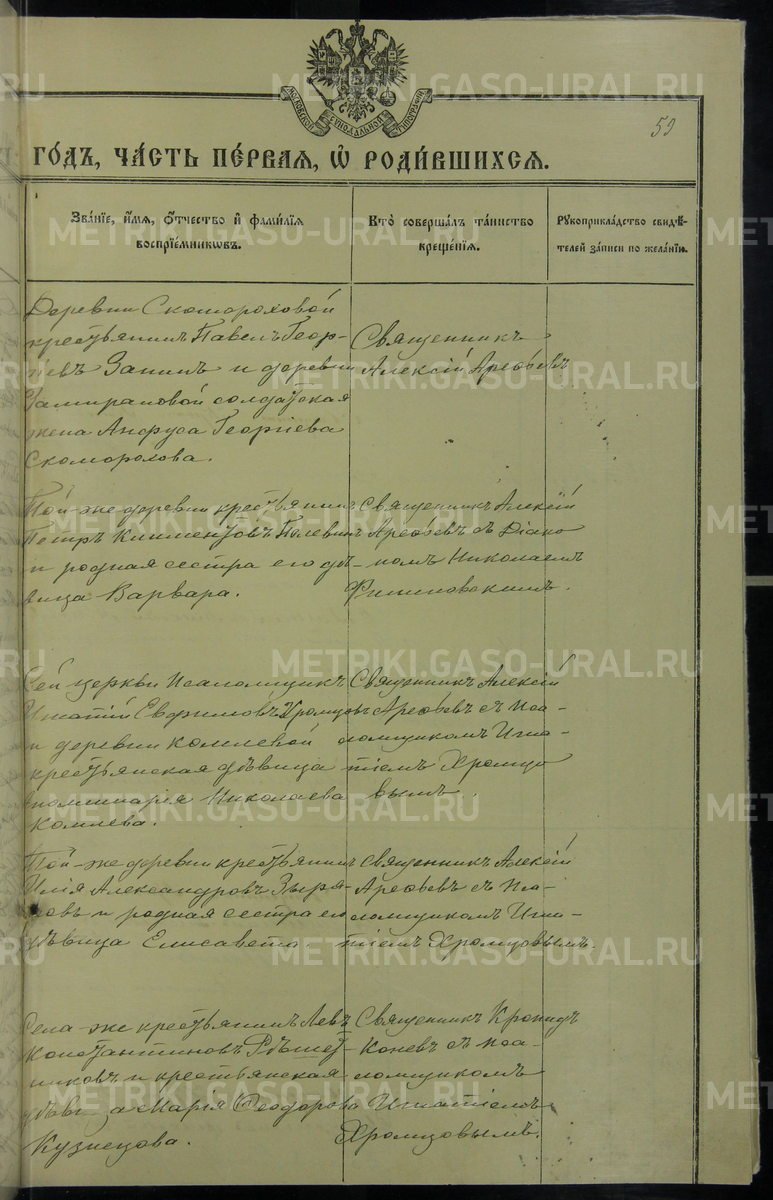 METRIKI.GASO-URAL.RU
МОСКОВСКОЙ СѴНОДАЛЬНОЙ ТИПОГРАФІИ
59
ГО́ДЪ, ЧА́СТЬ ПЕ́РВАЯ, Ѡ҆ РОДИ́ВШИХСЯ.
Зва́нїе, и҆́мѧ, ѻ҆́тчество и҆ фами́лїѧ
воспрїе́мникѡвъ.
Кто̀ соверша́лъ та́инство
креще́нїѧ.
Рꙋкоприкла́дство свидѣ́-
телей за́писи по жела́нїю.
Деревни Скомороховой
крестьянинъ Павелъ Геор-
гіевъ Запинъ и деревни
солдатская
жена Анфуса Георгіева
Скоморохова.
Священникъ
Алексій Арефьевъ
Той-же деревни крестьянинъ
Петръ Климентовъ Полевинъ
и родная сестра его дѣ-
вица Варвара.
Священникъ Алексій
Арефьевъ съ Діако
номъ Николаемъ
Сей церкви Псаломщикъ
Игнатій Евфимовъ Хромцовъ
и деревни Комлевой
крестьянская дѣвица
Николаева
Комлева.
Священникъ Алексій
Арефьевъ съ Пса-
ломщикомъ Игна-
тіемъ Хромцо
вымъ.
Той-же деревни крестьянинъ
Илія Александровъ Зыря-
новъ и родная сестра его
дѣвица Елисавета.
Священникъ Алексій
Арефьевъ съ Пса-
ломщикомъ Игна-
тіемъ Хромцовымъ.
Села-же крестьянинъ Левъ
Константиновъ Рѣшет
никовъ и крестьянская
дѣвица Марія Ѳеодорова
Кузнецова.
Священникъ Кронидъ
Коневъ съ пса-
ломщикомъ
Игнатіемъ
Хромцовымъ.